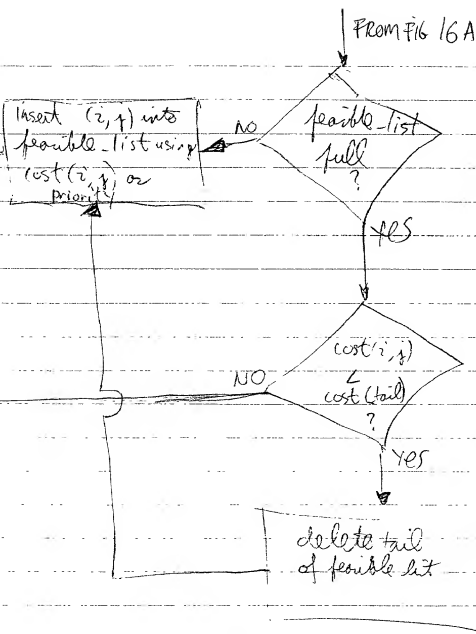 FROM FIG 16A
feasible_list
full
?
NO
insert (i, j) into
feasible_list using
cost(i, j) as
priority
YES
cost(i, j)
<
cost(tail)
?
NO
YES
delete tail
of feasible list